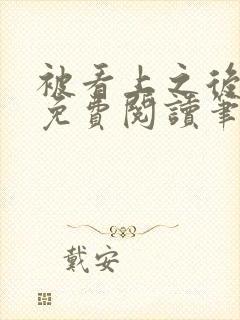 被看上之後
免費閱讀筆
戴安